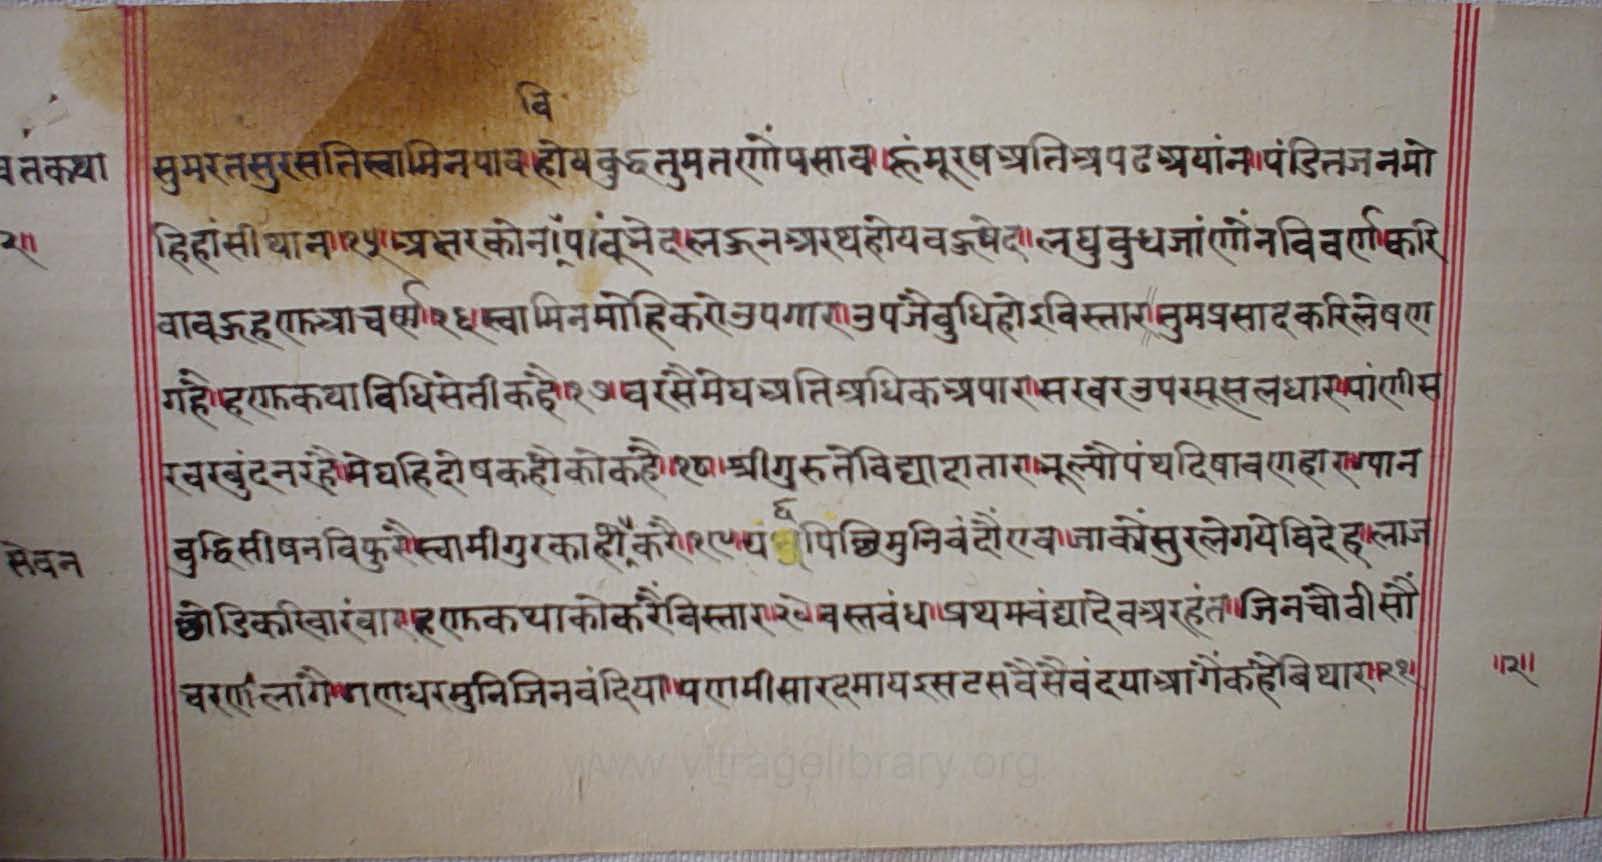 वि
व्रतकथा
सुमरतसुरसतिस्वामिनपाव॥होयबुद्धतुमतणौंपसाव॥हूंमूरषअतिअपढअयांन॥पंडितजनमो
२॥
हिहांसीथान॥१५॥अक्षरकोनांपांवूंभेद॥लऊनअरथहोयवऊषेद॥लघुबुधजांणौंनविवर्ण॥करि
वावऊहणूआचर्ण॥१६॥स्वामिनमोहिकरोउपगार॥उपजैबुधिहोइविस्तार॥तुमप्रसादकरिलेषण
गहै॥हणूकथाविधिसेतीकहै॥१७॥वरसैमेघअतिअधिकअपार॥सरवरउपरमूसलधार॥पांणीस
रवरबुंदनरहै॥मेघहिदोषकहोकोकहै॥१८॥श्रीगुरुतेविद्यादातार॥भूल्यौपंथदिषावणहार॥ग्यान
द्ध
बुद्धिसीषनविफुरै॥स्वामीगुरकाहौकरै॥१९॥ पिछिमुनिवंदौंएव॥जाकौंसुरलेगयेविदेह॥लाज
सेवन
छोडिकरिवारंवार॥हणूकथाकोकरैंविस्तार॥२०॥वस्तबंध॥प्रथमवंद्यादेवअरहंत॥जिनचौवीसौं
चरणलागै॥गणधरमुनिजिनवंदिया॥पणमीसारदमाय॥इसटसवैसैवंदया॥आगैंकहैबिथार॥२१॥
॥२॥
www.vitragelibrary.org